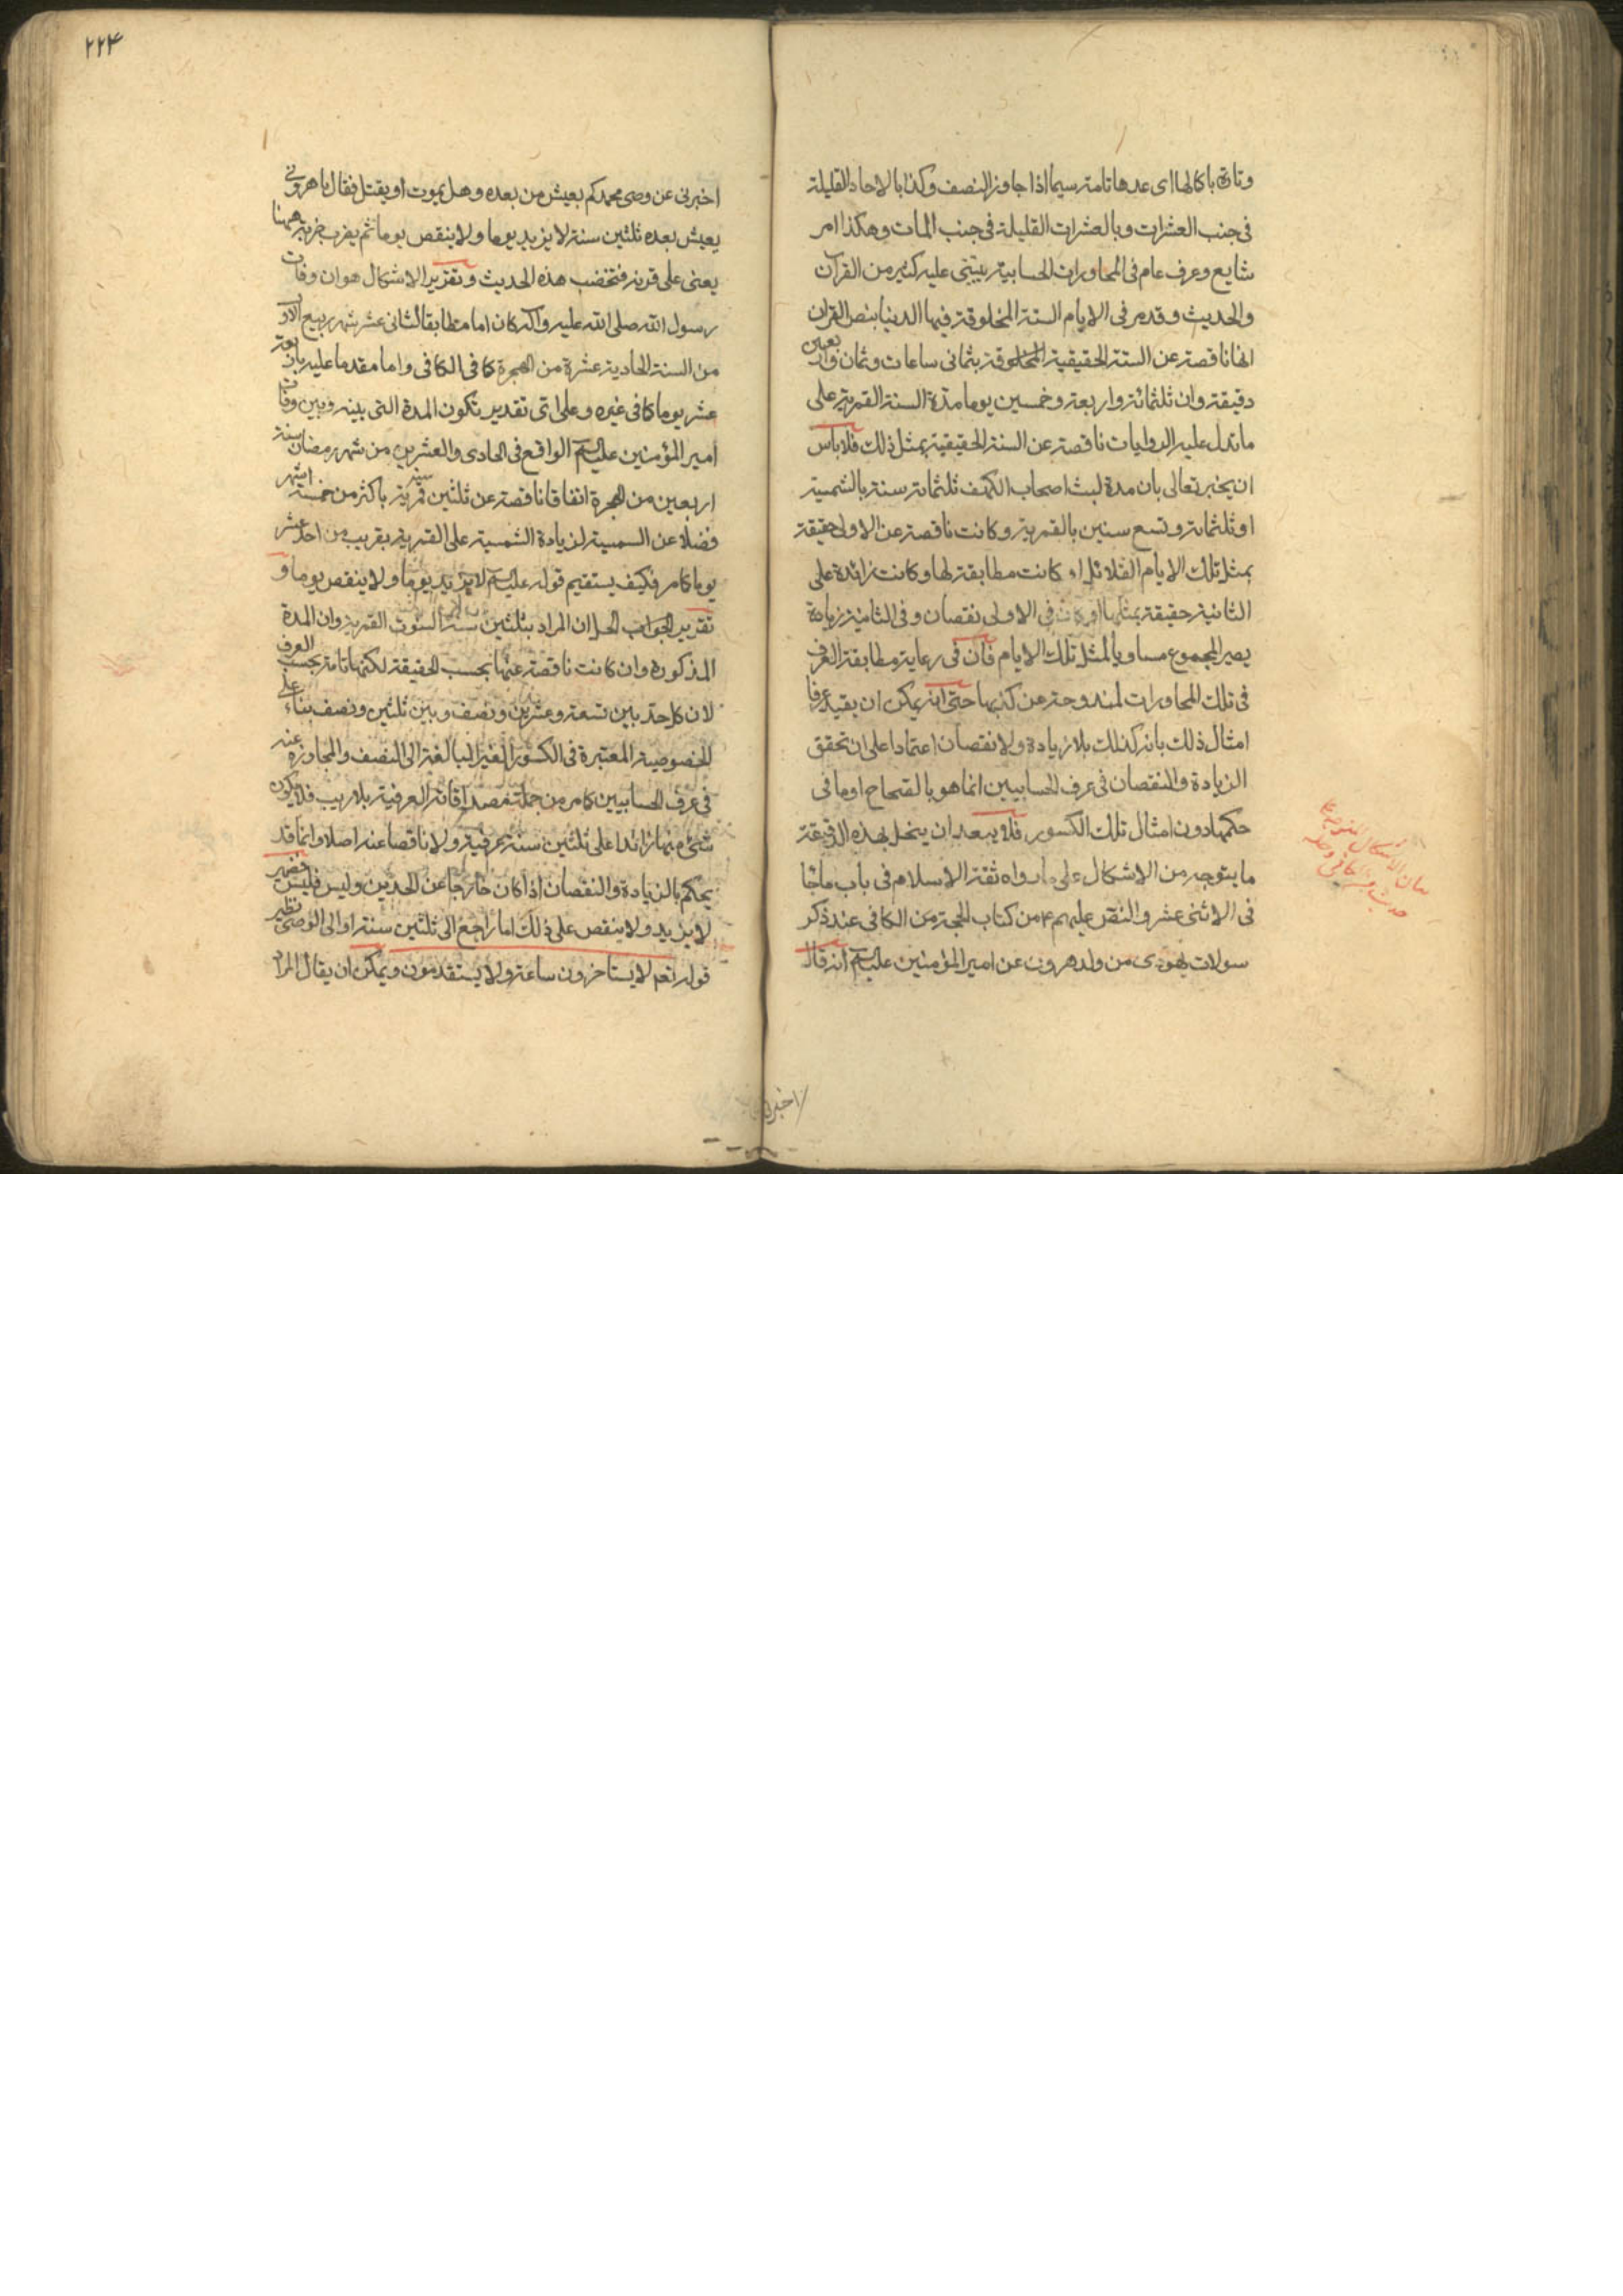 وتارة باكمالها اى عدها تامة سيما اذا جاوز النصف وكذا بالاحاد القليلة
فى جنب العشرات وبالعشرات القليلة فى جنب المات وهكذا امر
شايع وعرف عام فى المحاورات الحسابية يبتنى عليه كثير من القرآن
والحديث وقد مر فى الايام الستة المخلوقة فيها الدنيا بنص القران
انها ناقصة عن الستة الحقيقية المخلوقة بثمانى ساعات وثمان واربعين
دقيقة وان ثلثمائة واربعة وخمسين يوما مدة السنة القمرية على
ماتدل عليه الروايات ناقصة عن السنة الحقيقية بمثل ذلك فلا باس
ان يخبر تعالى بان مدة لبث اصحاب الكهف ثلثماة سنة بالشمسية
او ثلثماة وتسع سنين بالقمرية وكانت ناقصة عن الاولى حقيقة
بمثل تلك الايام القلائل او كانت مطابقة لها وكانت زائدة على
الثانية حقيقة بمثلها او كان فى الاولى نقصان وفى الثانية زيادة
يصير المجموع مساويا لمثل تلك الايام فان فى رعاية مطابقة العرف
فى تلك المحاورات لمندوحة عن كذبها حتى انه يمكن ان يقيد عرفا
امثال ذلك بانه كذلك بلا زيادة ولا نقصان اعتمادا على ان تحقق
الزيادة والنقصان فى عرف الحسابيين انما هو بالصحاح او ما فى
حكمها دون امثال تلك الكسور فلا يبعد ان ينحل بهذه الدقيقة
ما يتوجه من الاشكال على ما رواه ثقة الاسلام فى باب ما جا
فى الاثنى عشر والنص عليهم ع من كتاب الحجة من الكافى عند ذكر
سولات يهودى من ولد هرون عن امير المؤمنين عليه السلم انه قال
بيان الاشكال
حديث الكافى وحله
اخبرنى
٢٢٤
اخبرنى عن وصى محمد كم يعيش من بعده وهل يموت او يقتل فقال يا هرونى
يعيش بعده ثلثين سنة لا يزيد يوما ولا ينقص يوما ثم يضرب ضربة ههنا
يعنى على قرنه فتخضب هذه الحديث وتقرير الاشكال هو ان وفات
رسول الله صلى الله عليه وآله كان اما مطابقا لثانى عشر شهر ربيع الاول
من السنة الحادية عشرة من الهجرة كما فى الكافى واما مقدما عليه باربعة
عشر يوما كما فى غيره وعلى اى تقدير تكون المدة التى بينه وبين وفات
امير المؤمنين عليه السلم الواقع فى الحادى والعشرين من شهر رمضان سنة
اربعين من الهجرة اتفاقا ناقصة عن ثلثين سنة قمرية باكثر من خمسة اشهر
فضلا عن الشمسية لزيادة الشمسية على القمرية بقريب من احد عشر
يوما كما مر فكيف يستقيم قوله عليه السلم لا يزيد يوما ولا ينقص يوما و
تقرير الجواب الحل ان المراد بثلثين سنة السنون القمرية وان المدة
المذكورة وان كانت ناقصة عنها بحسب الحقيقة لكنها تامة بحسب العرف
لان كل حد بين تسعة وعشرين ونصف وبين ثلثين ونصف بناء على
الخصوصية المعتبرة فى الكسور الغير البالغة الى النصف والمجاوزة عنه
فى عرف الحسابيين كما مر من جملة مصداقاته العرفية بلا ريب فلا يكون
شىء منها زائدا على ثلثين سنة عرفية ولا ناقصا عنه اصلا وانما قد
يحكم بالزيادة والنقصان اذا كان خارجا عن الحدين وليس فليس فضمير
لا يزيد ولا ينقص على ذلك اما راجع الى ثلثين سنة او الى الوصى نظير
قوله تعم لا يستاخرون ساعة ولا يستقدمون ويمكن ان يقال المراد